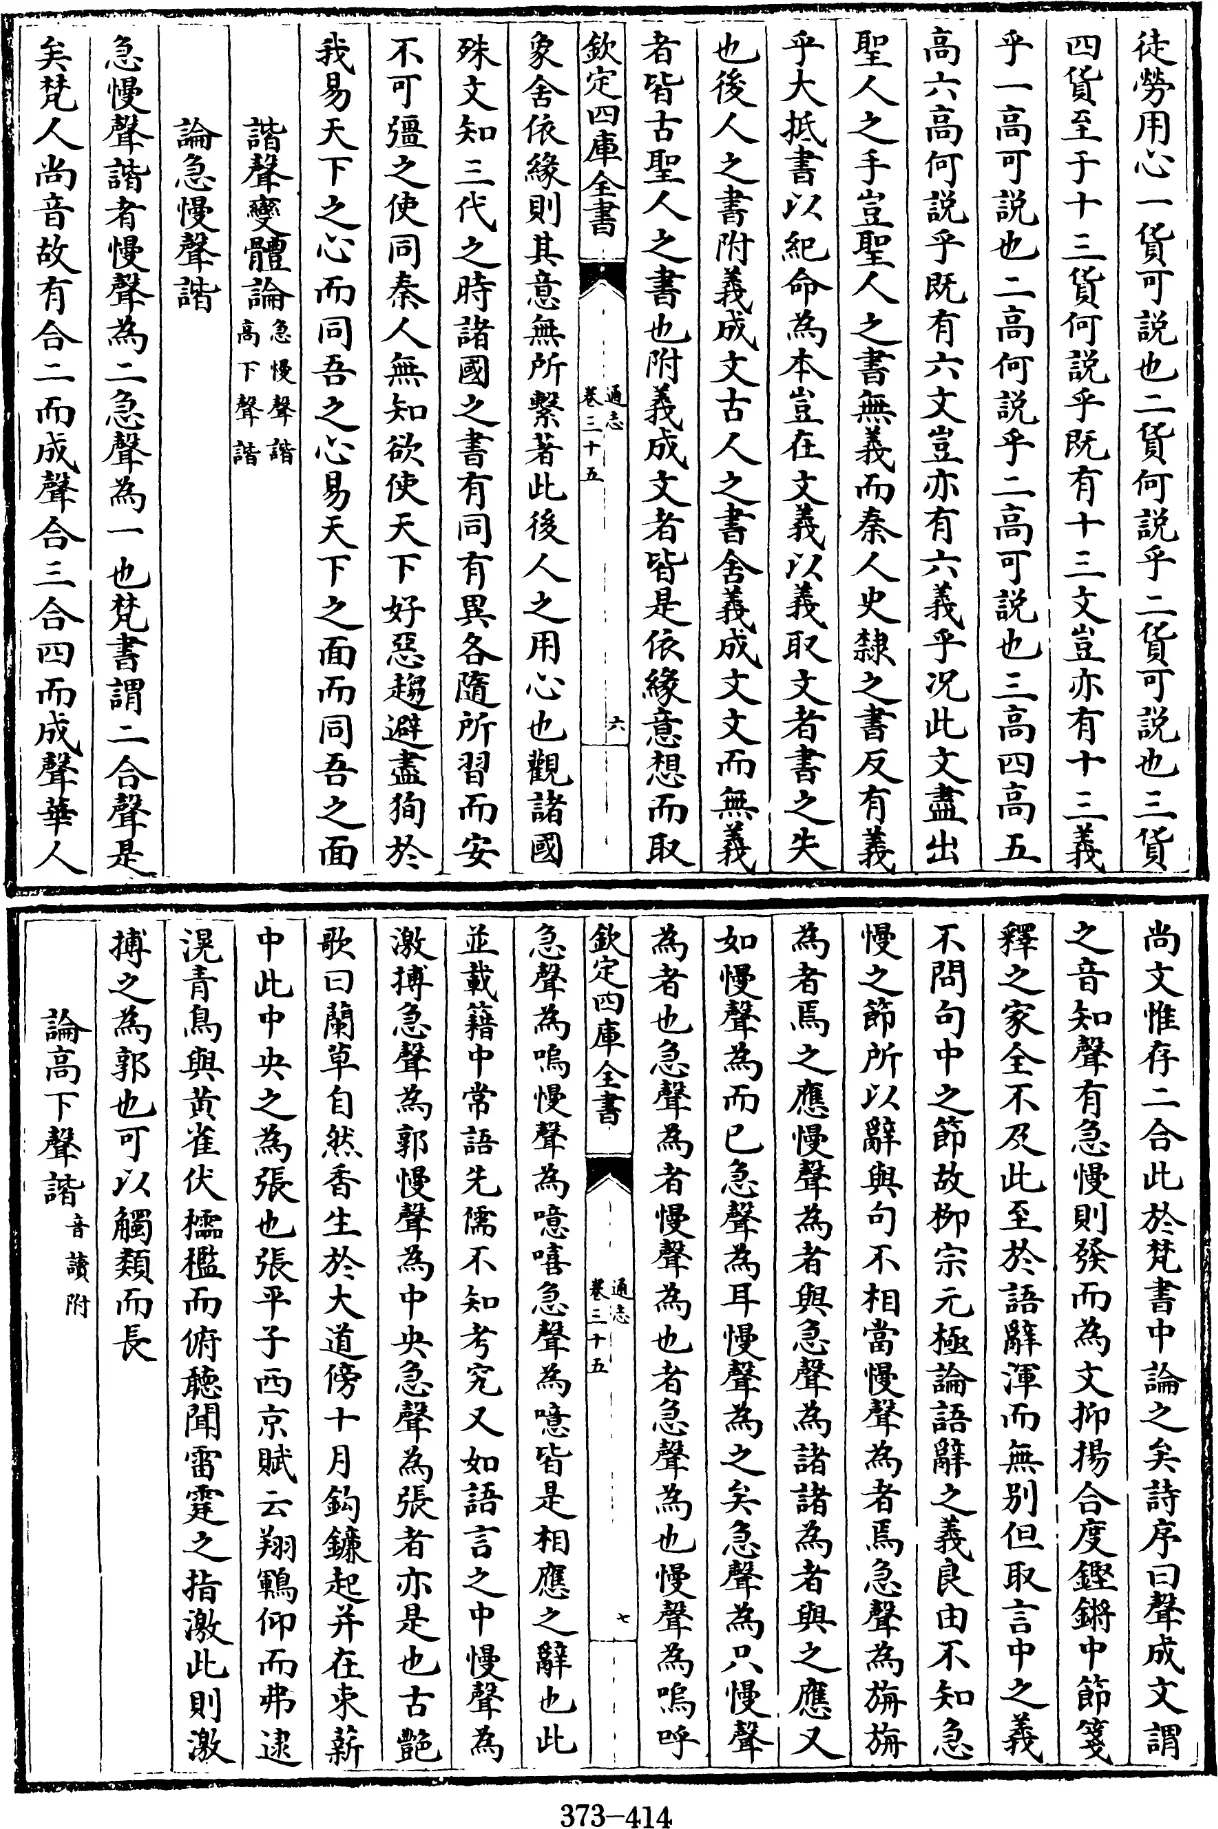 徒勞用心一貨可説也二貨何説乎二貨可説也三貨
四貨至于十三貨何説乎既有十三文豈亦有十三義
乎一高可説也二高何説乎二高可説也三高四高五
高六高何説乎既有六文豈亦有六義乎况此文盡出
聖人之手豈聖人之書無義而秦人史隸之書反有義
乎大抵書以紀命為本豈在文義以義取文者書之失
也後人之書附義成文古人之書舍義成文文而無義
者皆古聖人之書也附義成文者皆是依緣意想而取
欽定四庫全書
通志
卷三十五
六
象舍依緣則其意無所繫著此後人之用心也觀諸國
殊文知三代之時諸國之書有同有異各隨所習而安
不可彊之使同秦人無知欲使天下好惡趨避盡狥於
我易天下之心而同吾之心易天下之面而同吾之面
諧聲變體論急慢聲諧
高下聲諧
論急慢聲諧
急慢聲諧者慢聲為二急聲為一也梵書謂二合聲是
矣梵人尚音故有合二而成聲合三合四而成聲華人
尚文惟存二合此於梵書中論之矣詩序曰聲成文謂
之音知聲有急慢則發而為文抑揚合度鏗鏘中節箋
釋之家全不及此至於語辭渾而無别但取言中之義
不問句中之節故柳宗元極論語辭之義良由不知急
慢之節所以辭與句不相當慢聲為者焉急聲為旃旃
為者焉之應慢聲為者與急聲為諸諸為者與之應又
如慢聲為而已急聲為耳慢聲為之矣急聲為只慢聲
為者也急聲為者慢聲為也者急聲為也慢聲為嗚呼
欽定四庫全書
通志
卷三十五
七
急聲為嗚慢聲為噫嘻急聲為噫皆是相應之辭也此
並載籍中常語先儒不知考究又如語言之中慢聲為
激搏急聲為郭慢聲為中央急聲為張者亦是也古艶
歌曰蘭草自然香生於大道傍十月鈎鐮起并在束薪
中此中央之為張也張平子西京賦云翔鶤仰而弗逮
況青鳥與黄雀伏櫺檻而俯聽聞雷霆之指激此則激
搏之為郭也可以觸類而長
論高下聲諧音讀附
373-414